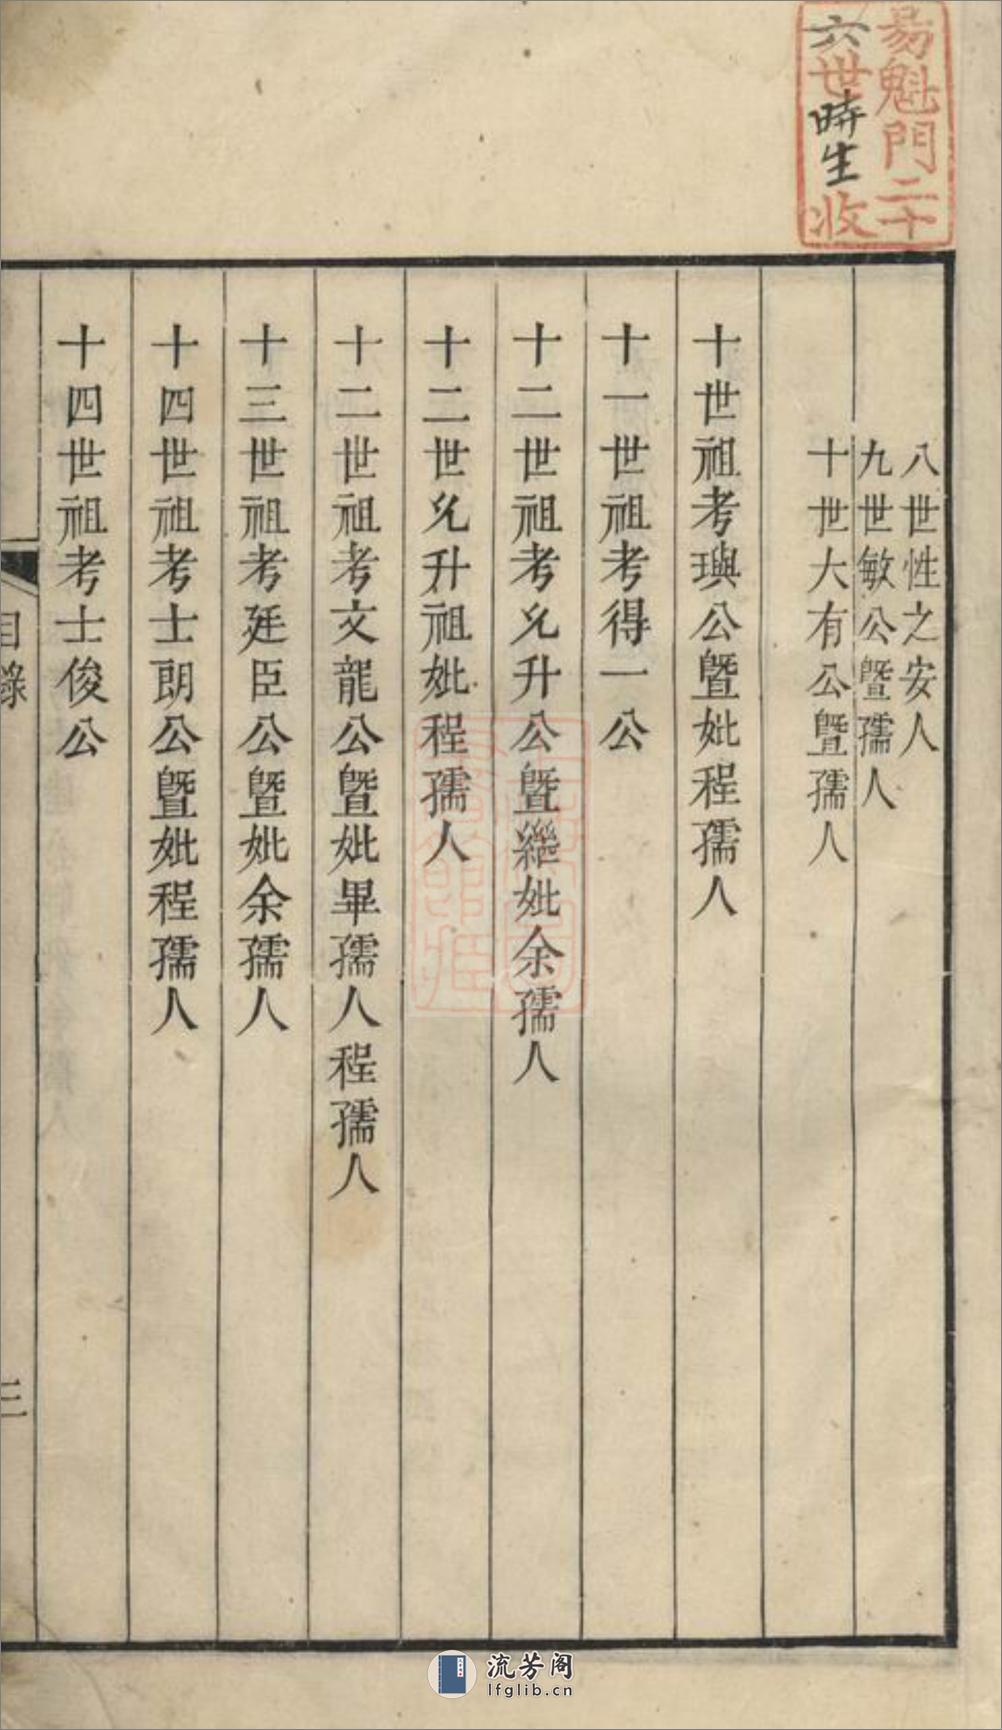 易魁門二十
六世時生收
八世性之安人
九世敏公暨孺人
十世大有公暨孺人
十世祖考璵公暨妣程孺人
十一世祖考得一公
十二世祖考允升公暨繼妣余孺人
十二世允升祖妣程孺人
十二世祖考文龍公暨妣畢孺人程孺人
十三世祖考廷臣公暨妣余孺人
十四世祖考士朗公暨妣程孺人
十四世祖考士俊公
目錄
三
流芳阁
lfglib.cn